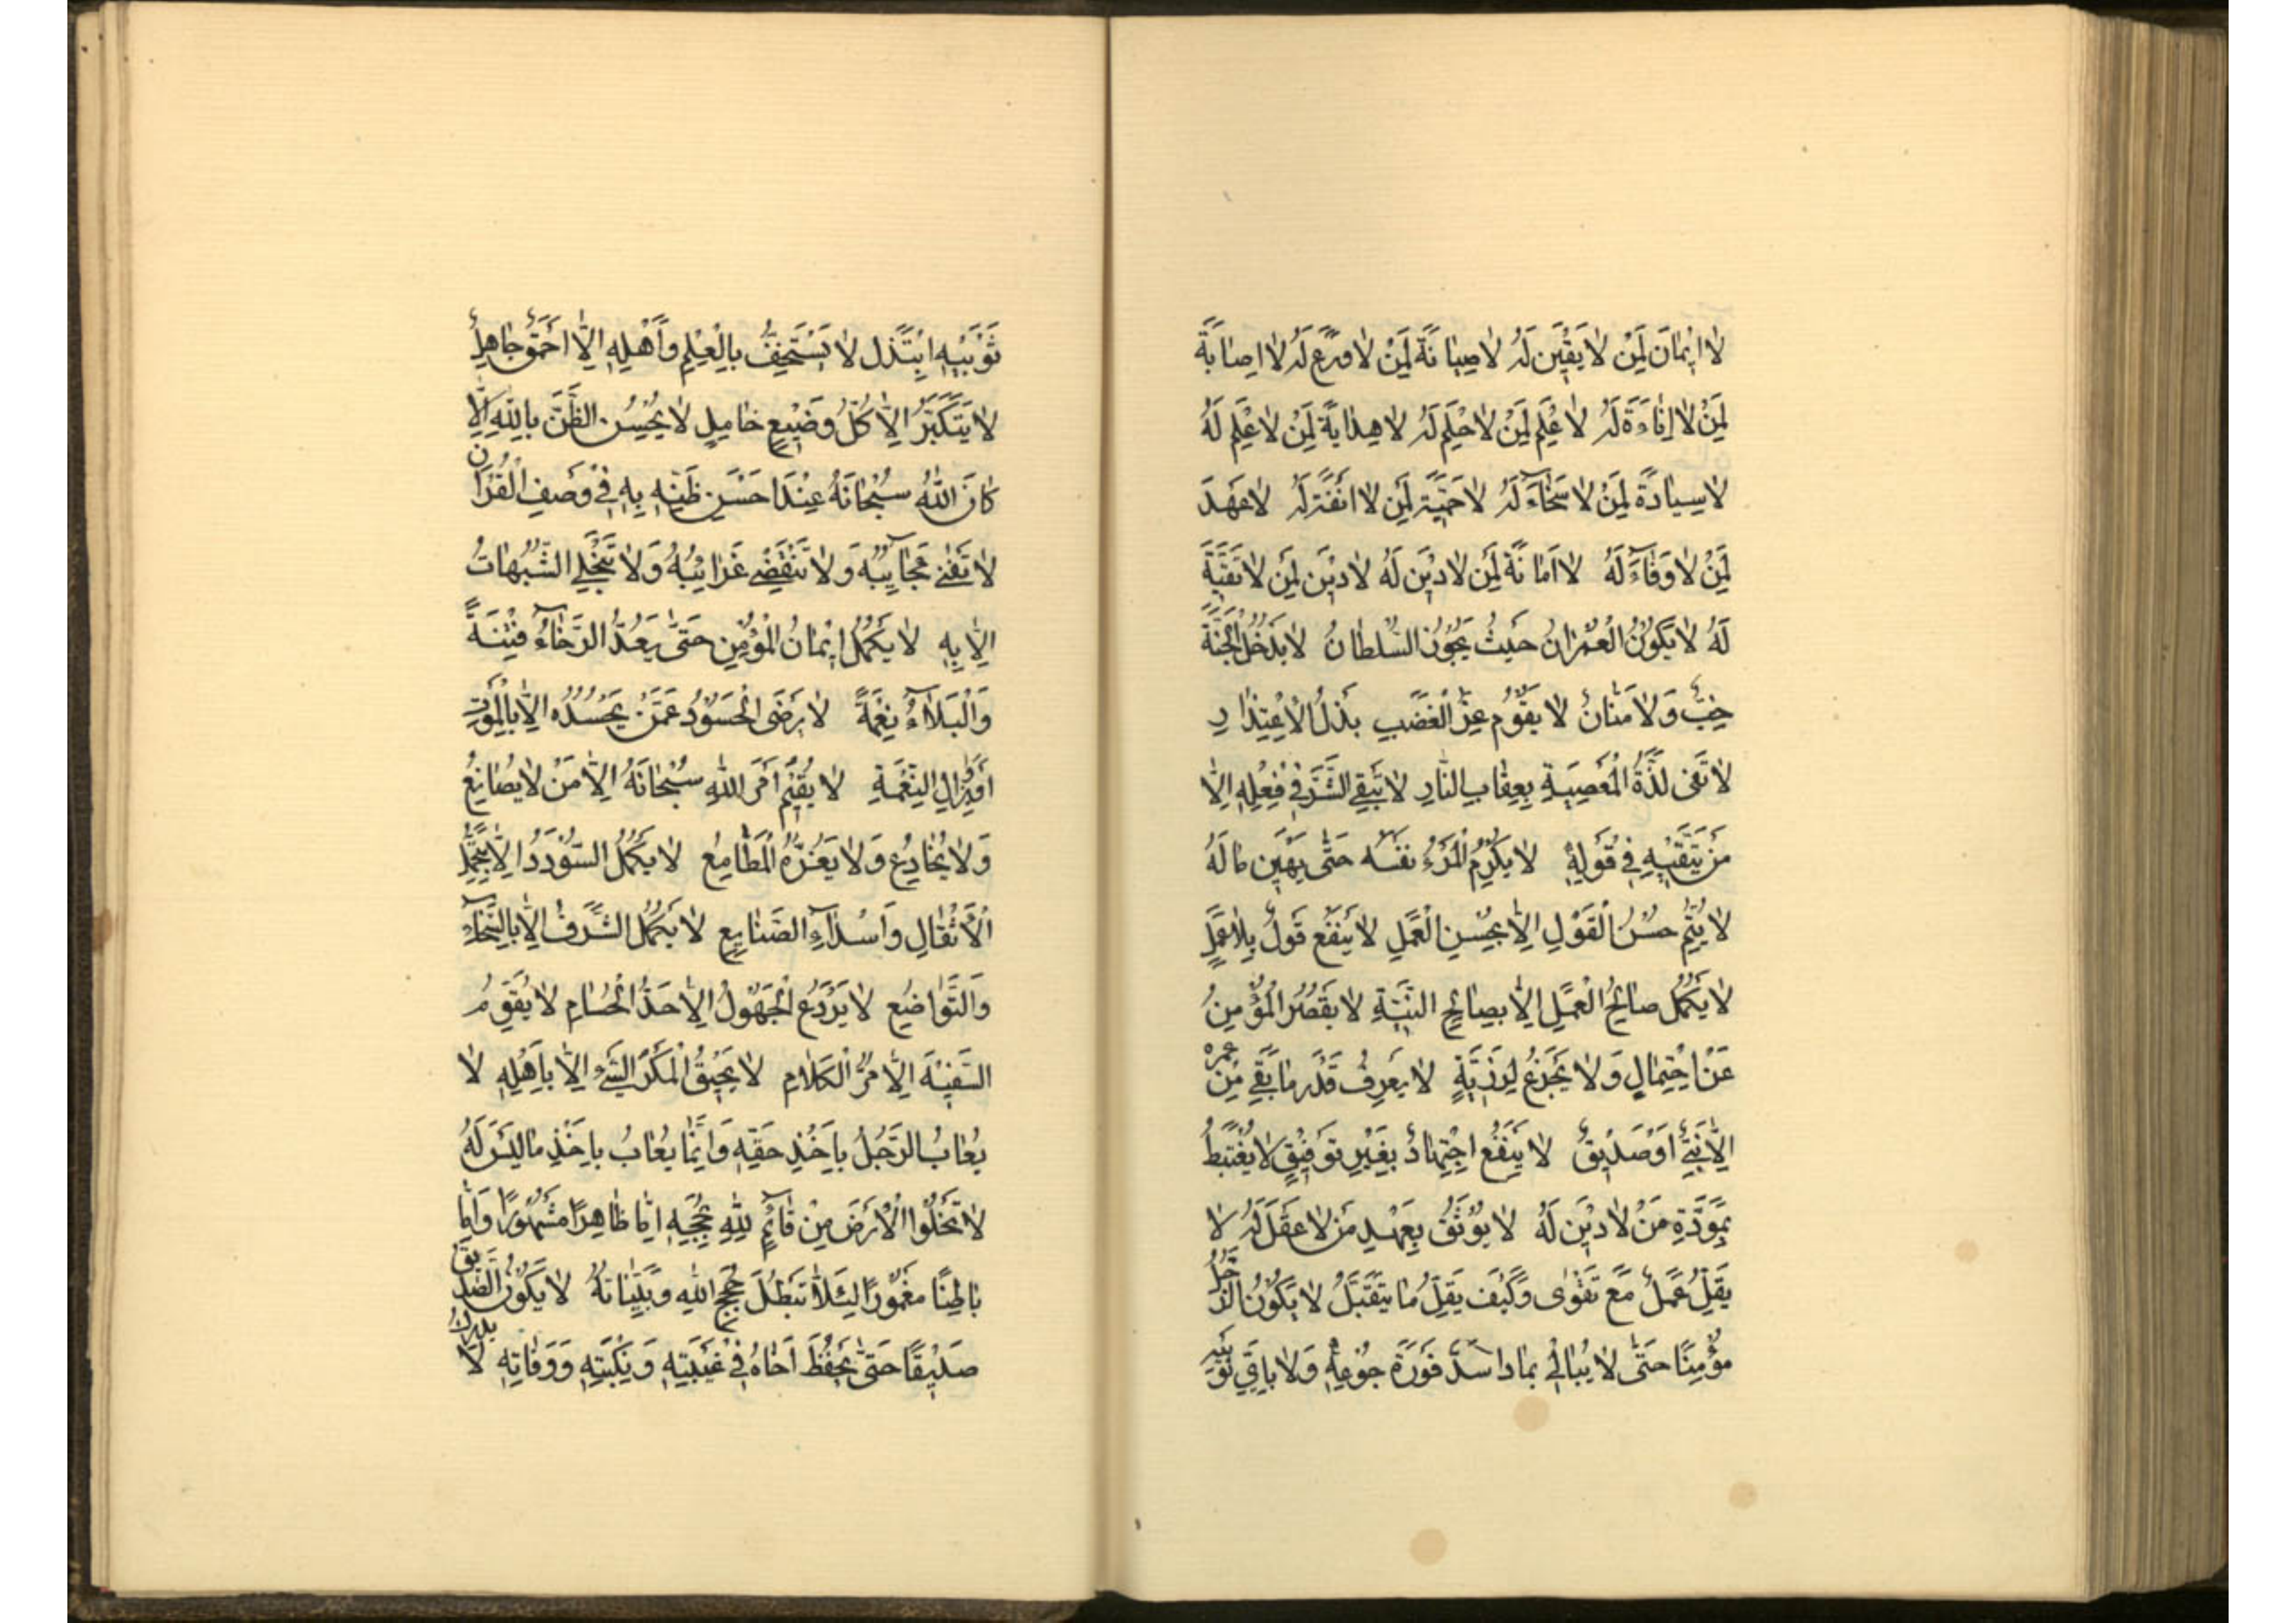 لا اِيمانَ لِمَنْ لا يَقِيَن لَهُ لا صِيانَةَ لِمَنْ لا وَرَعَ لَهُ لا اِصابَةَ
لِمَنْ لا اِناءَةَ لَهُ لا عِلْمَ لِمَنْ لا حِلْمَ لَهُ لا هِدايَةَ لِمَنْ لا عِلْمَ لَهُ
لا سِيادَةَ لِمَنْ لا سَخاءَ لَهُ لا حَمِيَّةَ لِمَنْ لا انَفَةَ لَهُ لا عَهْدَ
لِمَنْ لا وَفاءَ لَهُ لا اَمانَةَ لِمَن لا دِيَن لَهُ لا دِيَن لِمَن لا تَقِيَّةَ
لَهُ لا يَكُونُ الْعُمْرانُ حَيثُ يَجُورُ السُّلطانُ لا يَدخُلُ الجَنَّةَ
خِبٌّ وَلا مَنّانٌ لا يَقُومُ عِزُّ الْغَضَبِ بِذُلِّ الاِعْتِذارِ
لا تَفى لَذَّةُ الْمَعْصِيَةِ بِعِقابِ النّارِ لا يَتَّقِي الشَّرَّ فِي فِعْلِهِ اِلّا
مَن يَتَّقِيهِ فِي قَوْلِهِ لا يُكْرِمُ الْمَرْءُ نَفْسَه حَتّى يَهِيَن مالَهُ
لا يُتِمُّ حُسْنُ الْقَوْلِ اِلّا بِحُسْنِ الْعَمَلِ لا يَنفَعُ قَولٌ بِلا عَمَلٍ
لا يَكْمُلُ صالِحُ الْعَمَلِ اِلّا بِصالِحِ النِّيَّةِ لا يَقْصُرُ الْمُؤْمِنُ
عَنْ اِحْتِمالٍ وَلا يَجْزَعُ لِرَزِيَّةٍ لا يَعرِفُ قَدْرَ ما بَقِيَ مِنْ عمره
اِلّا نَبِيٌّ اَوْ صَدِيقٌ لا يَنفَعُ اجْتِهادٌ بِغَيْرِ تَوفِيقٍ لا يُغْتَبَطُ
بِمَوَدَّةِ مَنْ لا دِيَن لَهُ لا يُوثَقُ بِعَهْدِ مَن لا عَقلَ لَهُ لا
يَقِلُّ عَمَلٌ مَعَ تَقْوى وَكَيْفَ يَقِلُّ ما يُتَقَبَّلُ لا يَكُونُ الرَّجُلُ
مُؤْمِنًا حَتّى لا يُبالِي بِماذا سَدَّ فَورَةَ جُوعِهِ وَلا باَيِّ ثَوبَيْهِ
ثَوْبَيْهِ ابْتَذَل لا يَسْتَخِفُّ بِالْعِلْمِ وَاَهْلِهِ اِلّا اَحْمَقٌ جاهِلٌ
لا يَتَكَبَّرُ اِلّا كُلُّ وَضِيعٍ خامِلٍ لا يُحْسِنُ الظَّنَّ بِاللهِ اِلّا
كانَ اللهُ سُبْحانَهُ عِنْدَ حُسْنِ ظَنِّهِ بِهِ فِي وَصفِ الْقُرْانِ
لا تَفْنى عَجايِبُهُ وَلا تَنْقَضِي غَرايِبُهُ وَلا تَنْجَلِي الشُّبُهاتُ
اِلّا بِهِ لا يَكْمُلُ اِيمانُ الْمُؤْمِنِ حَتّى يَعُدَّ الرَّخاءَ فِتْنَةً
وَالْبَلاءَ نِعْمَةً لا يَرْضَى الْحَسُودُ عَمَّنْ يَحْسُدُه اِلّا بِالْمَوْتِ
اَوْ بِزَوالِ النِّعْمَةِ لا يُقِيمُ اَمْرَ اللهِ سُبْحانَهُ اِلّا مَنْ لا يُصانِعُ
وَلا يُخادِعُ وَلا يَغُرُّهُ الْمَطامِعُ لا يَكمُلُ السُّؤْدَدُ اِلّا بِتَحَمُّلِ
الْاَثْقالِ وَاسْداءِ الصَّنايِعِ لا يَكمُلُ الشَّرَفُ اِلّا بِالسَّخاءِ
وَالتَّواضُعِ لا يَرْدَعُ الْجَهُولَ اِلّا حَدُّ الْحُسامِ لا يُقَوِّمُ
السَّفِيهَ اِلّا مُرُّ الْكَلامِ لا يَحِيقُ الْمَكْرُ السَّيِّءُ اِلّا بِاَهْلِهِ لا
يُعابُ الرَّجُلُ بِاَخْذِ حَقِّهِ وَاِنَّما يُعابُ بِاَخْذِ ما لَيْسَ لَهُ
لا تَخْلُوا الْاَرْضُ مِنْ قائِمٍ لِلّهِ بِحُجَجِهِ اِمّا ظاهِرًا مَشْهُورًا وَاِمّا
باطِنًا مَغْمُورًا لِئَلّا تَبْطُلَ حُجَجُ اللهِ وَبَيِّناتُهُ لا يَكُونُ الصَّدِيقُ
صَدِيقًا حَتّى يَحْفَظَ اَخاهُ فِي غَيْبَتِهِ وَنَكْبَتِهِ وَوَفاتِهِ لا